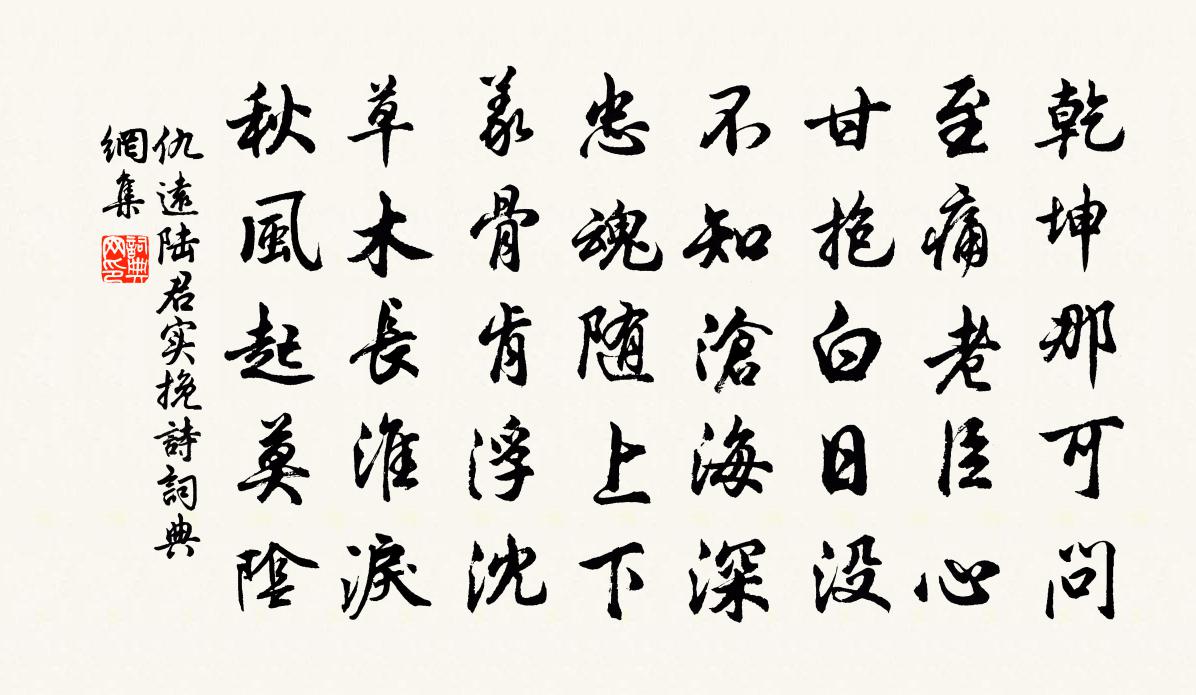 乾坤那可問
至痛老臣心
甘抱白日没
不知滄海深
忠魂随上下
義骨肯浮沈
草木長淮淚
秋風起莫陰
仇遠陸君实挽詩詞典
網集
詞典
网印